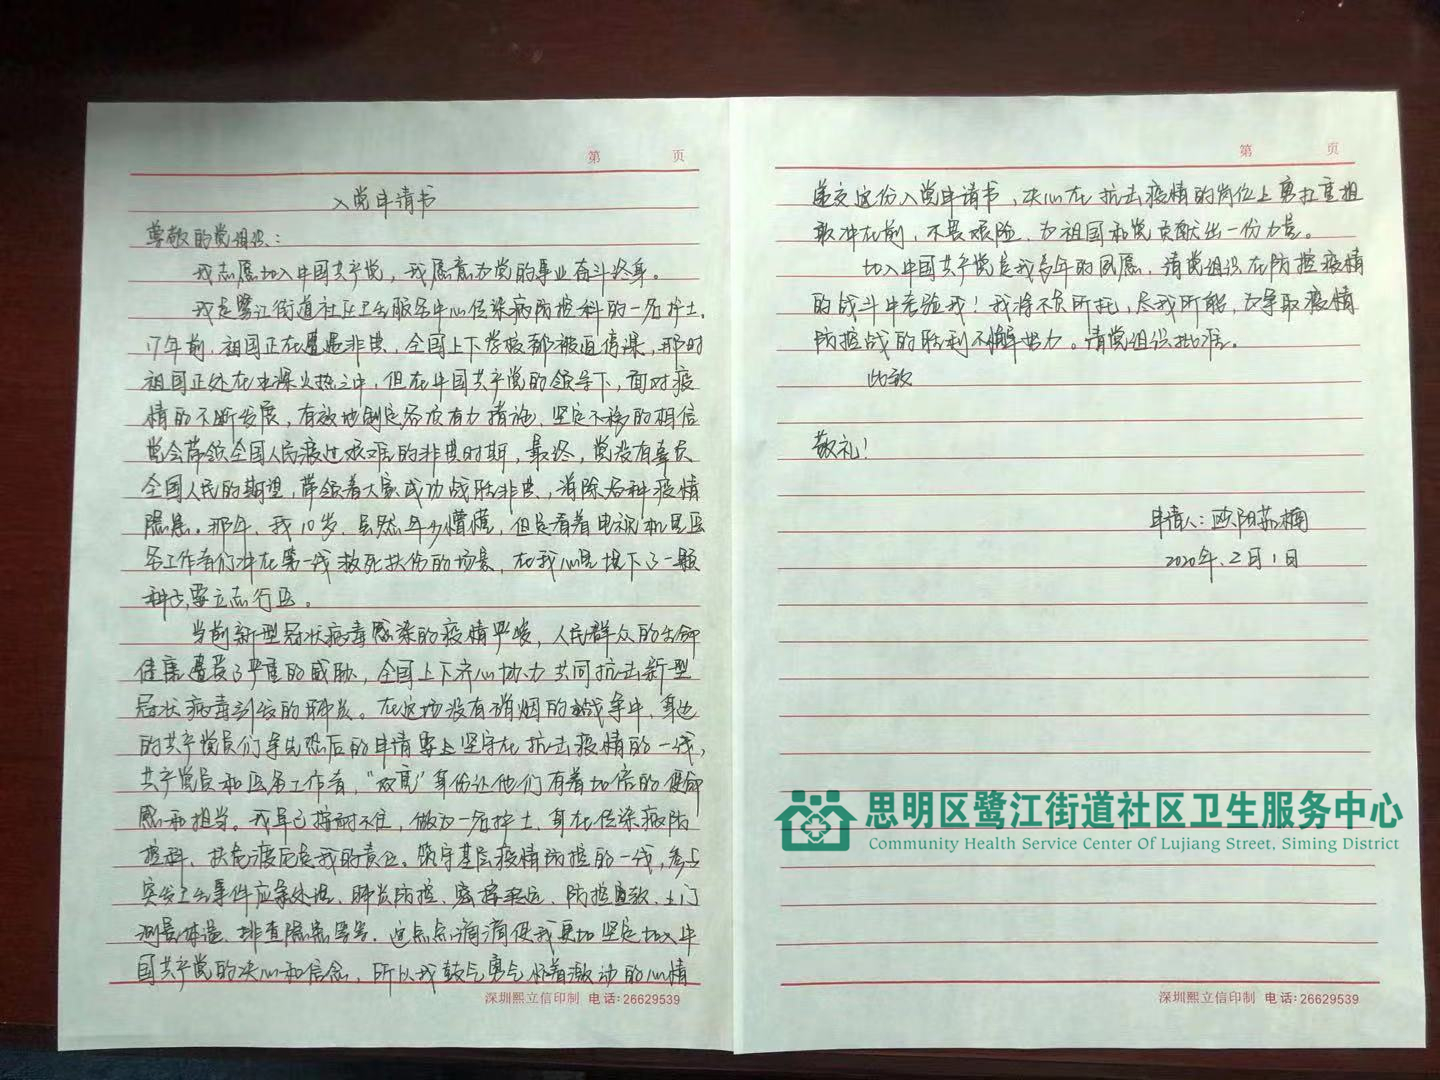 第 页
入党申请书
尊敬的党组织：
我志愿加入中国共产党，我愿意为党的事业奋斗终身。
我是鹭江街道社区卫生服务中心传染病防控科的一名护士。
17年前，祖国正在遭遇非典，全国上下学校都被迫停课，那时
祖国正处在水深火热之中，但在中国共产党的领导下，面对疫
情的不断发展，有效地制定各项有力措施、坚定不移的相信
党会带领全国人民渡过艰难的非典时期，最终，党没有辜负
全国人民的期望，带领着大家成功战胜非典，消除各种疫情
隐患。那年，我10岁，虽然年少懵懂，但是看着电视机里医
务工作者们冲在第一线救死扶伤的场景，在我心里埋下了一颗
种子，要立志行医。
当前新型冠状病毒感染的疫情严峻，人民群众的生命
健康遭受了严重的威胁，全国上下齐心协力共同抗击新型
冠状病毒引发的肺炎。在这场没有硝烟的战争中，身边
的共产党员们争先恐后的申请要上坚守在抗击疫情的一线，
共产党员和医务工作者，“双亮”身份让他们有着加倍的使命
感和担当。我早已按耐不住，做为一名护士、身在传染病防
控科，扶危渡厄是我的责任。驻守基层疫情防控的一线，参与
突发卫生事件应急处理、肺炎防控、密接转运、防控宣教、上门
测量体温、排查隐患等等，这点点滴滴使我更加坚定加入中
国共产党的决心和信念，所以我鼓气勇气怀着激动的心情
深圳熙立信印制 电话:26629539
第 页
递交这份入党申请书，决心在抗击疫情的岗位上勇扛重担
敢冲在前，不畏艰险、为祖国和党贡献出一份力量。
加入中国共产党是我多年的夙愿，请党组织在防控疫情
的战斗中考验我！我将不负所托，尽我所能，为争取疫情
防控战的胜利不懈努力。请党组织批准。
此致
敬礼！
申请人：欧阳茹楠
2020年2月1日
思明区鹭江街道社区卫生服务中心
Community Health Service Center Of Lujiang Street, Siming District
深圳熙立信印制 电话:26629539